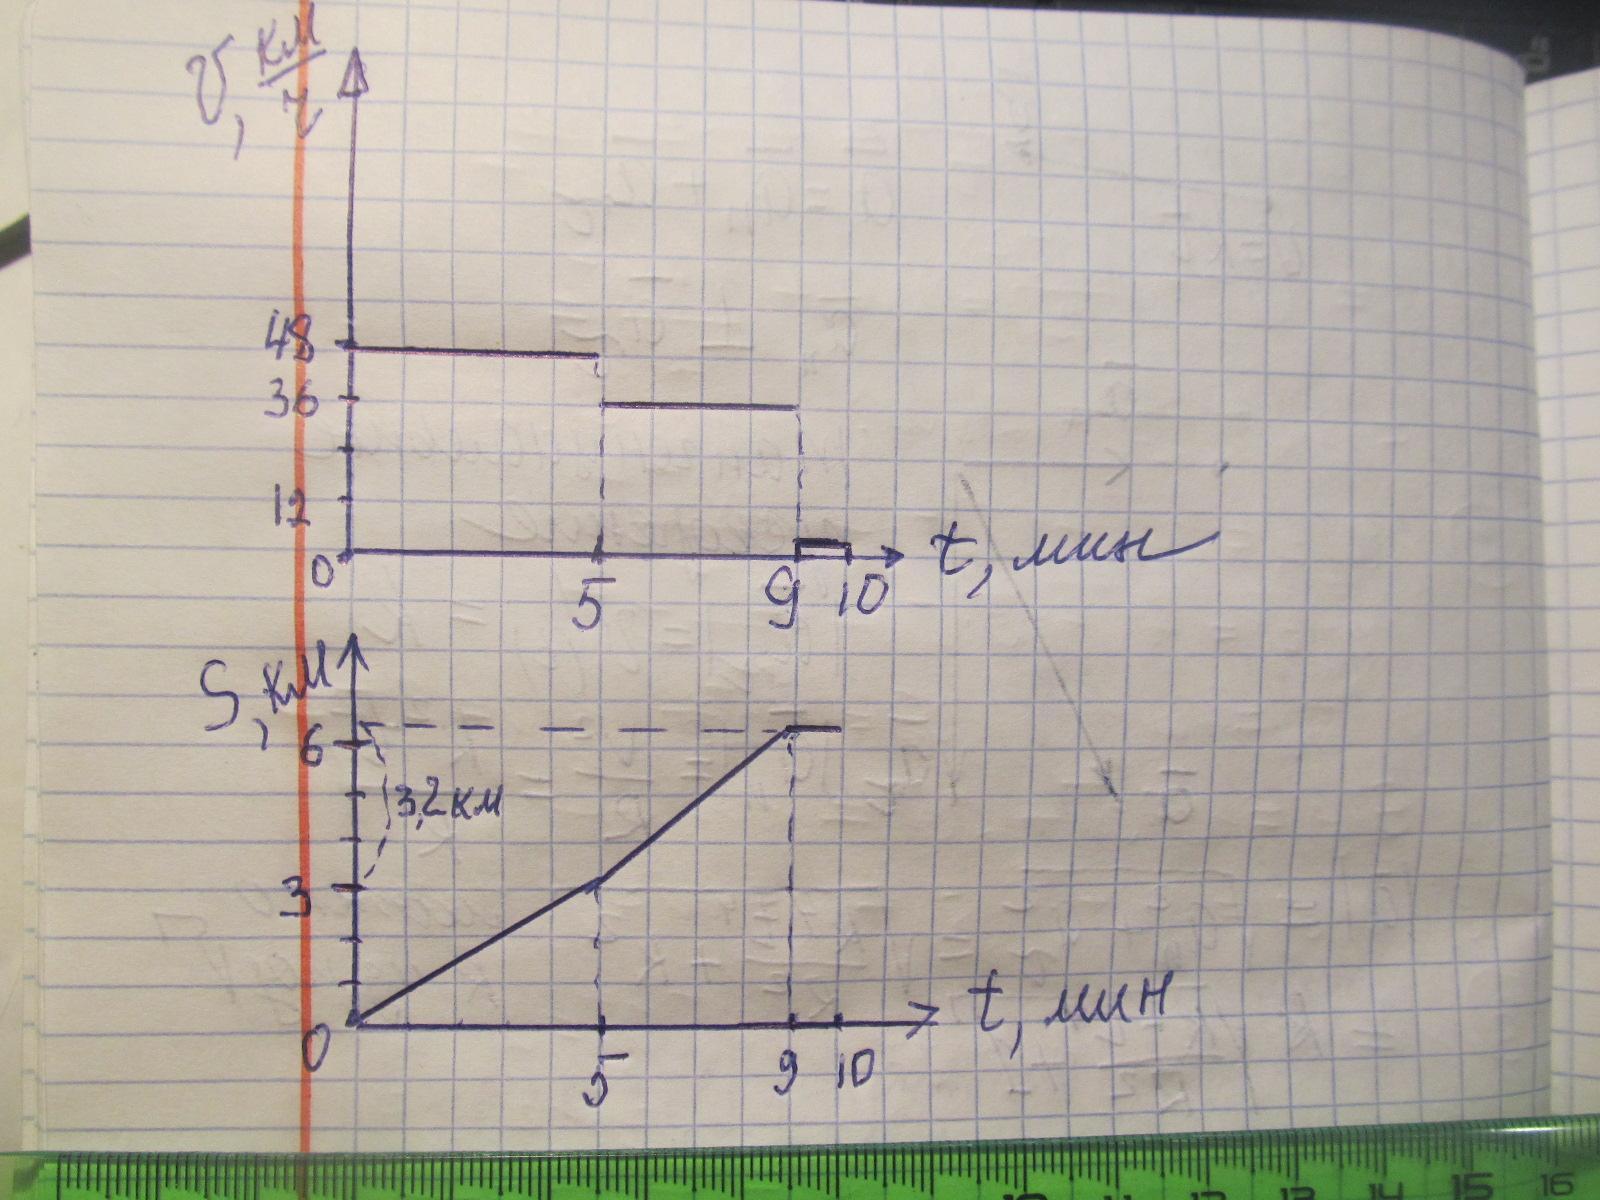 v, км/ч
48
36
12
0
5 9 10 t, мин
S, км
6
3,2 км
3
0
5 9 10 t, мин
15 16